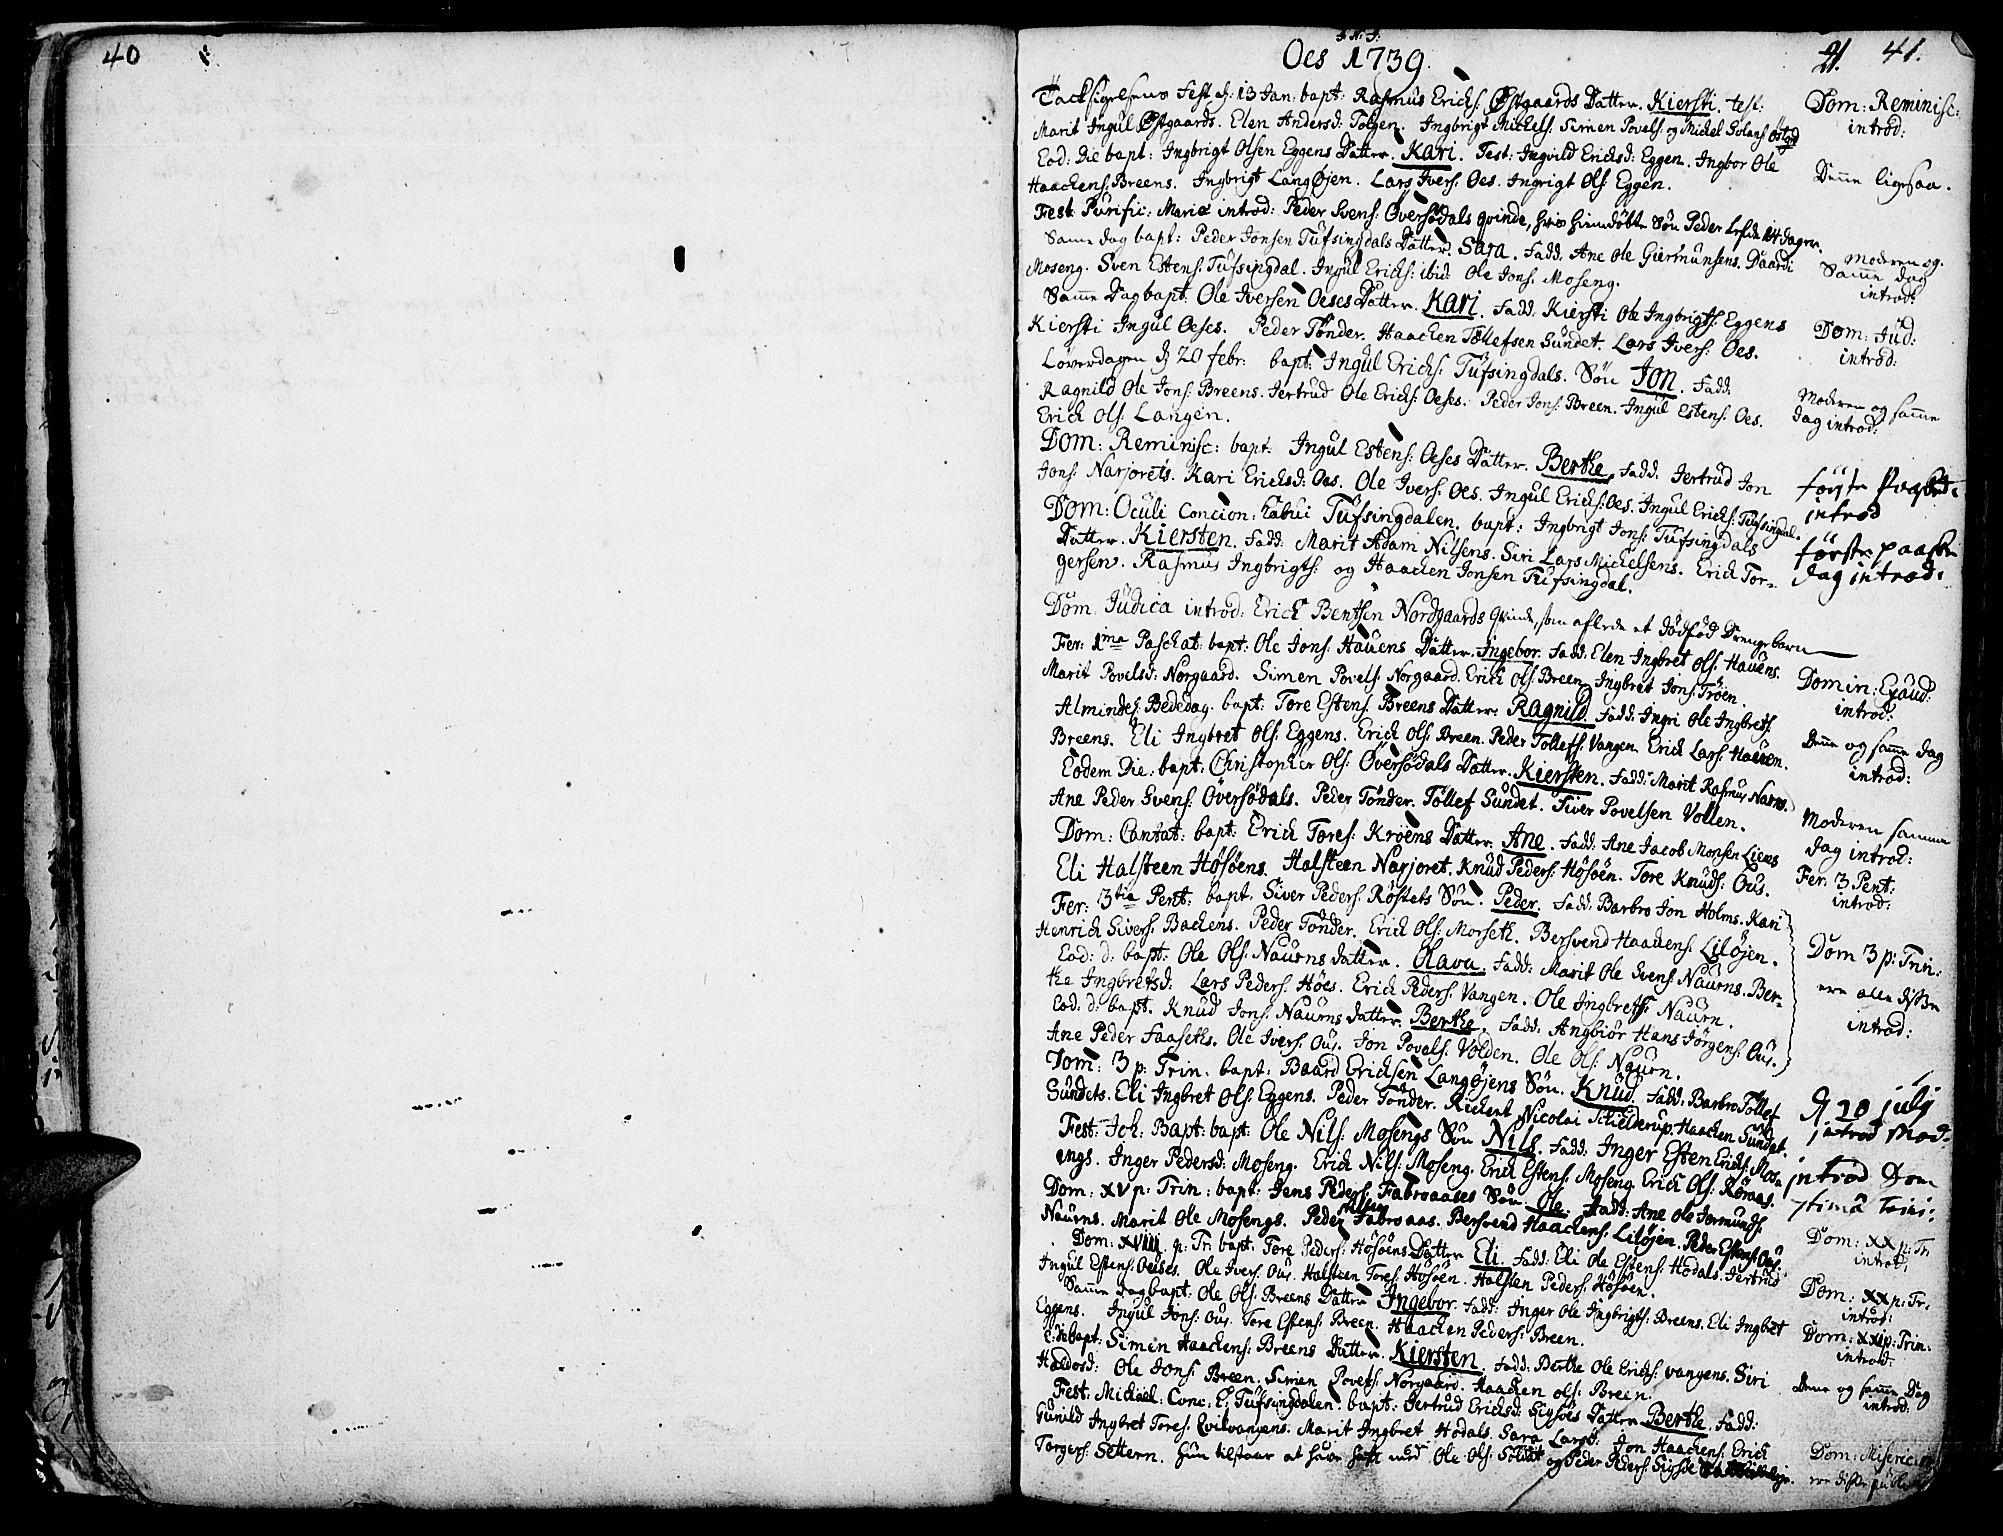 40
J: N: J:
Oes 1739.
21. 41.
Tacksigelsens Fest d: 13 Jan: bapt: Rasmus Ericks: Østgaards Datter. Kiersti. test:
Marit Ingul Østgaards. Elen Andersd: Tolgen. Ingbrigt Mickels: Simen Povels: og Mickel
Eod: Die bapt: Ingbrigt Olsen Eggens Datter. Kari. Test: Ingvild Ericksd: Eggen. Ingbor Ole
Haackens: Breens. Ingbrigt Langøjen. Lars Ivers: Oes. Ingrigt Ols: Eggen.
Fest: Purific: Mariæ introd: Peder Svens: Øversødals qvinde, hvis hiemdøbte Søn Peder lefde 14 dagen.
Samme dag bapt: Peder Jonsen Tufsingdals Datter. Sara. Fadd: Ane Ole Giermunsens. Baardi
Moseng. Sven Estens: Tufsingdal. Ingul Ericks: ibid: Ole Jons: Moseng.
Samme Dag bapt: Ole Iversen Oeses Datter. Kari. Fadd: Kiersti Ole Ingbrigts: Eggens
Kiersti Ingul Oeses. Peder Tønder. Haacken Tollefsen Sundet. Lars Ivers: Oes.
Løverdagen d 20 febr: bapt: Ingul Ericks: Tufsingdals. Søn Jon. Fadd:
Ragnild Ole Jons: Breens. Jertrud Ole Ericks: Oeses. Peder Jons: Breen. Ingul Estens: Oes.
Erick Ols: Langen.
Dom: Reminisc: bapt: Ingul Estens: Oeses Datter. Berthe. Fadd: Jertrud Jon
Jons: Narjorets. Kari Ericksd: Oes. Ole Ivers: Oes. Ingul Ericks: Oes. Ingul Ericks: Tufsingdal.
Dom: Oculi Concion: habui Tufsingdalen. bapt: Ingbrigt Jons: Tufsingdals
Datter. Kiersten. Fadd: Marit Adam Nilsens. Siri Lars Mickelsens. Erick Tor-
gersen. Rasmus Ingbrigts: og Haacken Jonsen Tufsingdal.
Dom: Judica introd: Erick Bentsen Nordgaards qvinde, som aflede et dødfød Drengebarn
Fer: 1ma Paschat: bapt: Ole Jons: Hauens Datter. Ingebor. Fadd: Elen Ingbret Ols: Hauens.
Marit Povelsd: Norgaard. Simen Povels: Norgaard. Erick Ols: Breen. Ingbret Jons: Trøen.
Almindel: Bededag. bapt: Tore Estens: Breens Datter. Ragnild. Fadd: Ingri Ole Ingbrets:
Breens. Eli Ingbret Ols: Eggens. Erick Ols: Breen. Peder Tollefs: Vangen. Erick Lars: Hauen.
Eodem Die. bapt: Christopher Ols: Øversødals Datter. Kiersten. Fadd: Marit Rasmus Narns.
Ane Peder Svens: Øversødals. Peder Tønder. Tollef Sundet. Siver Povelsen Vollen.
Dom: Cantat: bapt: Erick Tores: Krøens Datter. Ane. Fadd: Ane Jacob Monsen Liens
Eli Halsteen Høsøens. Halsteen Narjoret. Knud Peders: Høsøen. Tore Knuds: Ous.
Fer: 3tia Pent: bapt: Siver Peders: Røstets Søn. Peder. Fadd: Barbro Jon Holms. Kari
Henrick Sivers: Backens. Peder Tønder. Erick Ols: Morseth. Bersvend Haackens: Liløjen.
Eod: d: bapt: Ole Ols: Naurns datter. Olava. Fadd: Marit Ole Svens: Naurns. Ber-
the Ingbretsd: Lars Peders: Høes. Erick Peders: Vangen. Ole Ingbrets: Naurn.
Eod: d: bapt: Knud Jons: Naurns datter. Berthe. Fadd: Angbiør Hans Jørgens: Ous.
Ane Peder Faaseths. Ole Ivers: Ous. Jon Povels: Volden. Ole Ols: Naurn.
Dom: 3 p: Trin: bapt: Baard Ericksen Langøjens Søn. Knud. Fadd: Barbro Tollef
Sundets. Eli Ingbret Ols: Eggens. Peder Tønder. Rickert Nicolai Schielderup. Haacken Sundet.
Fest: Joh: Bapt: bapt: Ole Nils: Mosengs Søn Nils. Fadd: Inger Esten Ericks: Mos-
engs. Inger Pedersd: Moseng. Erick Nils: Moseng. Erick Estens: Moseng. Erick Ols: Røraas.
Dom: XV p: Trin: bapt: Jens Peders: Fabroaases Søn Ole. Fadd: Ane Ole Jormunds:
Naurns. Marit Ole Mosengs. Peder Nilsen Fabroaas. Bersvend Haackens: Liløjen. Peder Estens: Ous.
Dom: XVIII. p: Tr: bapt: Tore Peders: Høsøens Datter Eli. Fadd: Eli Ole Estens: Hodals. Jertrud
Ingul Estens: Oeses. Ole Ivers: Ous. Halsteen Tores: Høsøen. Halsten Peders: Høsøen.
Samme dag bapt: Ole Ols: Breens Datter Ingebor. Fadd: Inger Ole Ingbrigts: Breens. Eli Ingbret
Eggens. Ingul Jons: Ous. Tore Estens: Breen. Haacken Peders: Breen.
E: die bapt: Simen Haackens: Breens Datter. Kiersten. Fadd: Berthe Ole Ericks: vangens. Siri
Haldosd: Ole Jons: Breen. Simen Povels: Norgaard. Haacken Ols: Breen.
Fest: Michael: Conc: E: Tufsingdalen. bapt: Jertrud Ericksd: Sigsøes Datter Berthe. Fadd:
Gunild Ingbret Tores: Qvilvangens. Marit Ingbret Hodals. Sara Larsd: Jon Haackens: Erick
Torgers: Settern. hun tilstaar at have haft med Ole Ols: Soldat og Peder Peders: Sigsøe
Dom: Reminisc:
introd:
Denne ligesaa.
Moderen og
Samme dag
introd:
Dom: Jud:
introd:
Moderen og samme
dag introd:
første Paaske
introd
første paaske
dag introd:
Domin: Exaud:
introd:
Denne og samme dag
introd:
Moderen samme
dag introd:
Fer: 3 Pent:
introd:
Dom 3 p: Trin:
ere alle disse
introd:
d 20 julij
introd Mod:
introd Dom
Trini:
Dom: XX p: Tr
introd:
Dom: XX p: Tr:
introd:
Dom: XXI p: Trin:
introd:
Denne og samme Dag
introd:
Dom: Miseric:
ere disse